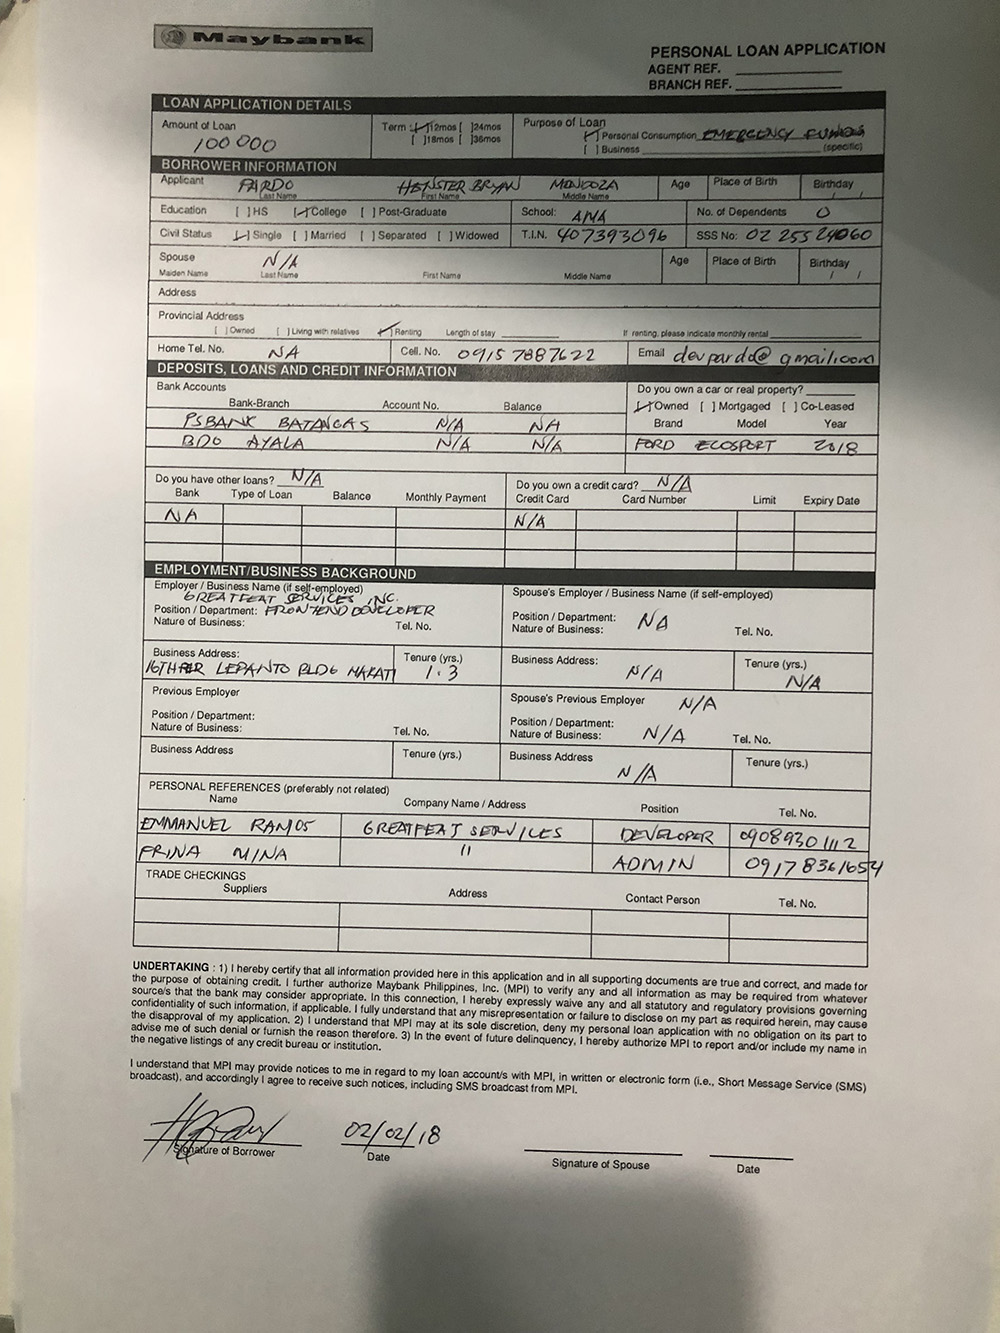 Maybank
PERSONAL LOAN APPLICATION
AGENT REF. ____________
BRANCH REF. ____________
LOAN APPLICATION DETAILS
Amount of Loan
100 000
Term : [✓]12mos [ ]24mos
[ ]18mos [ ]36mos
Purpose of Loan
[✓] Personal Consumption EMERGENCY FUNDS
[ ] Business (specific)
BORROWER INFORMATION
Applicant PARDO HENSTER BRYAN MENDOZA Age Place of Birth Birthday
Last Name First Name Middle Name / /
Education [ ] HS [✓] College [ ] Post-Graduate School: AMA No. of Dependents 0
Civil Status [✓] Single [ ] Married [ ] Separated [ ] Widowed T.I.N. 407393096 SSS No: 02 25524060
Spouse N/A Age Place of Birth Birthday
Maiden Name Last Name First Name Middle Name / /
Address
Provincial Address
[ ] Owned [ ] Living with relatives [✓] Renting Length of stay ________ If renting, please indicate monthly rental ________
Home Tel. No. NA Cell. No. 0915 7887622 Email devpardo@gmail.com
DEPOSITS, LOANS AND CREDIT INFORMATION
Bank Accounts Do you own a car or real property? ________
Bank-Branch Account No. Balance [✓] Owned [ ] Mortgaged [ ] Co-Leased
Brand Model Year
PSBANK BATANGAS N/A NA
BDO AYALA N/A N/A FORD ECOSPORT 2018
Do you have other loans? N/A Do you own a credit card? N/A
Bank Type of Loan Balance Monthly Payment Credit Card Card Number Limit Expiry Date
NA N/A
EMPLOYMENT/BUSINESS BACKGROUND
Employer / Business Name (if self-employed)
GREATFEAT SERVICES INC.
Position / Department: FRONTEND DEVELOPER
Nature of Business: Tel. No.
Spouse's Employer / Business Name (if self-employed)
Position / Department: NA
Nature of Business: Tel. No.
Business Address: Tenure (yrs.)
16TH FLR LEPANTO BLDG MAKATI 1.3
Business Address: N/A Tenure (yrs.) N/A
Previous Employer
Position / Department:
Nature of Business: Tel. No.
Spouse's Previous Employer N/A
Position / Department:
Nature of Business: N/A Tel. No.
Business Address Tenure (yrs.)
Business Address N/A Tenure (yrs.)
PERSONAL REFERENCES (preferably not related)
Name Company Name / Address Position Tel. No.
EMMANUEL RAMOS GREATFEAT SERVICES DEVELOPER 09089301112
FRINA MINA " ADMIN 09178361654
TRADE CHECKINGS
Suppliers Address Contact Person Tel. No.
UNDERTAKING : 1) I hereby certify that all information provided here in this application and in all supporting documents are true and correct, and made for
the purpose of obtaining credit. I further authorize Maybank Philippines, Inc. (MPI) to verify any and all information as may be required from whatever
source/s that the bank may consider appropriate. In this connection, I hereby expressly waive any and all statutory and regulatory provisions governing
confidentiality of such information, if applicable. I fully understand that any misrepresentation or failure to disclose on my part as required herein, may cause
the disapproval of my application. 2) I understand that MPI may at its sole discretion, deny my personal loan application with no obligation on its part to
advise me of such denial or furnish the reason therefore. 3) In the event of future delinquency, I hereby authorize MPI to report and/or include my name in
the negative listings of any credit bureau or institution.
I understand that MPI may provide notices to me in regard to my loan account/s with MPI, in written or electronic form (i.e., Short Message Service (SMS)
broadcast), and accordingly I agree to receive such notices, including SMS broadcast from MPI.
02/02/18
Signature of Borrower Date Signature of Spouse Date